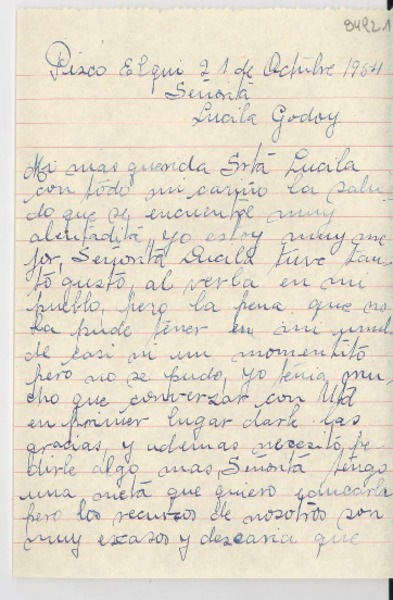 94921
Pisco Elqui 21 de Octubre 1954
Señorita
Lucila Godoy
Mi mas querida Srta Lucila
con todo mi cariño la salu-
do que se encuentre muy
alentadita, yo estoy muy me
jor, Señorita Lucila tuve tan-
to gusto, al verla en mi
pueblo, pero la pena que no
la pude tener en mi humil
de casi ni un momentito
pero no se pudo, yo tenia mu
cho que converzar con Ud
en primer lugar darle las
gracias, y ademas necesito pe
dirle algo mas, Señorita tengo
una nieta que quiero educarla
pero los recursos de nosotros son
muy escasos y desearia que